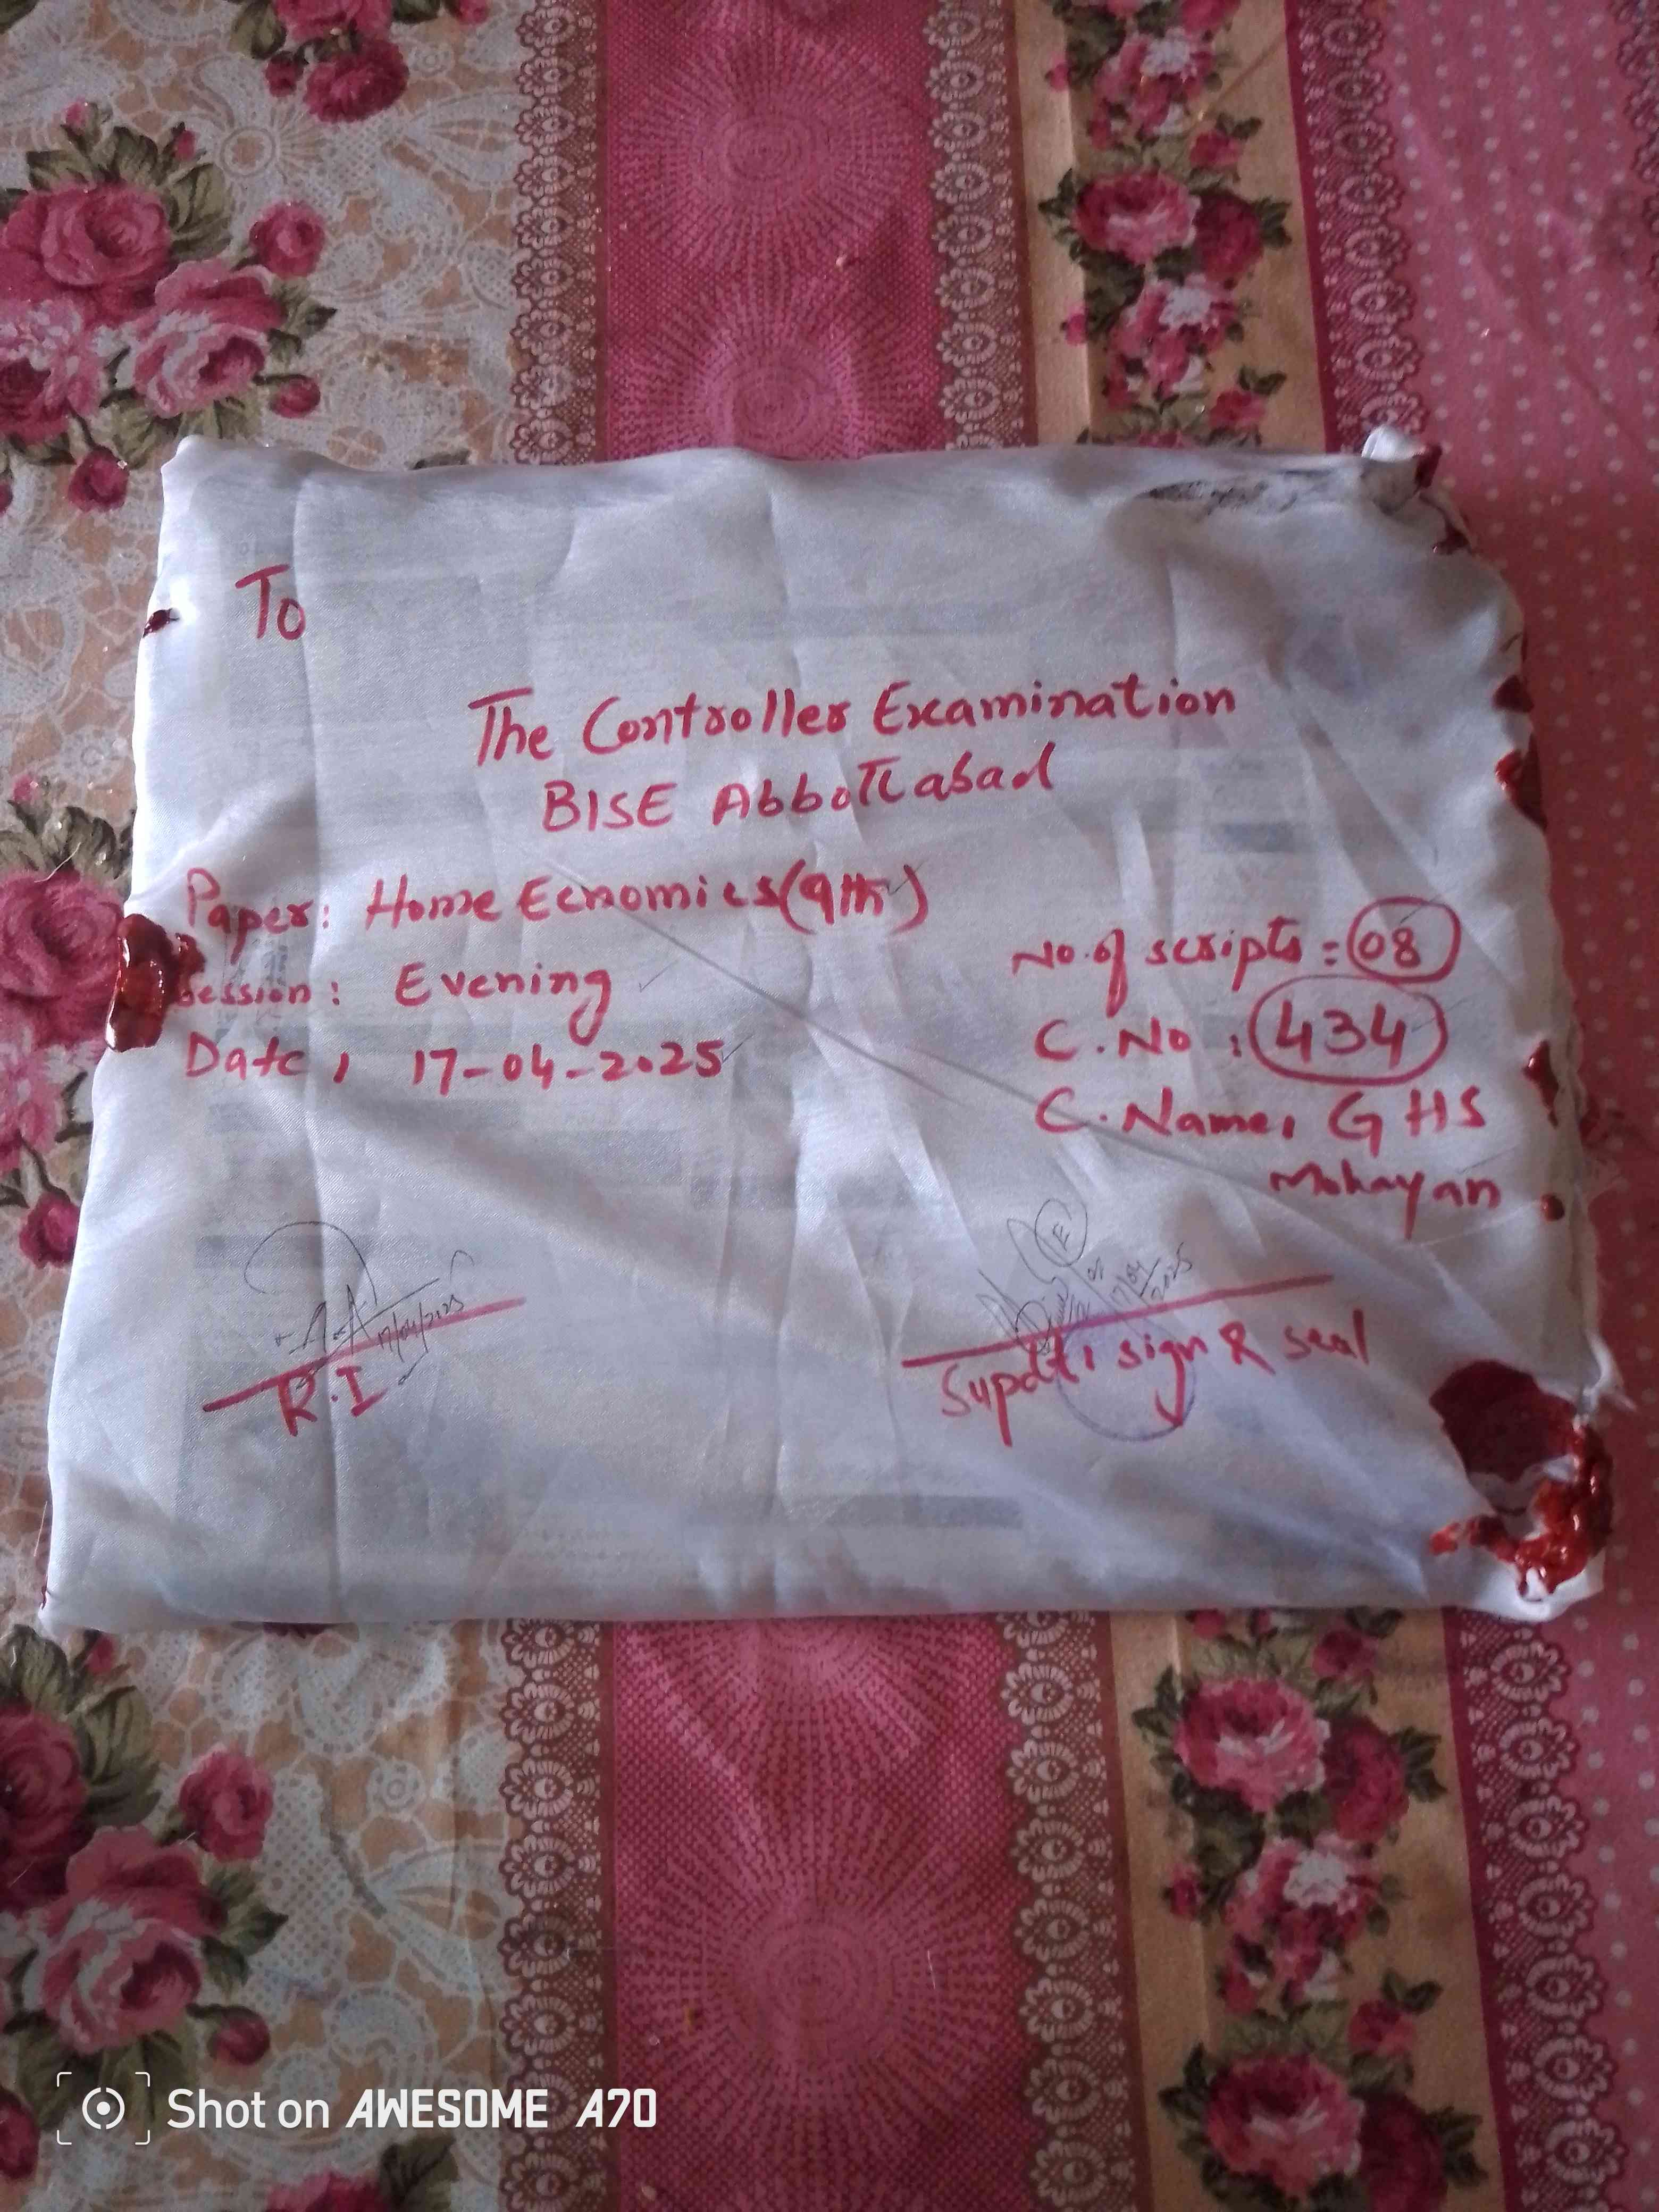 To
The Controller Examination
BISE Abbottabad
Paper: Home Ecnomics (9th)
Session: Evening
Date: 17-04-2025
No. of scripts: 08
C. No: 434
C. Name: GHS
Mohayan
17/04/2025
R.I
17/04/2025
Supdt: sign & seal
Shot on AWESOME A70